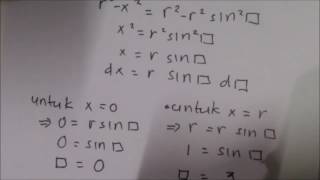 r²-x² = r²-r² sin²□
x² = r² sin²□
x = r sin□
dx = r sin□ d□
untuk x=0
⇒ 0 = r sin□
0 = sin□
□ = 0
•untuk x = r
⇒ r = r sin□
1 = sin□
□ =